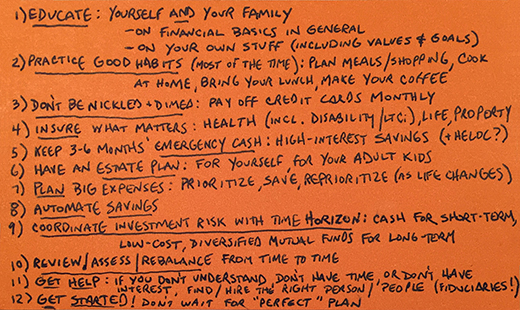 1) EDUCATE: YOURSELF AND YOUR FAMILY
- ON FINANCIAL BASICS IN GENERAL
- ON YOUR OWN STUFF (INCLUDING VALUES & GOALS)
2) PRACTICE GOOD HABITS (MOST OF THE TIME): PLAN MEALS/SHOPPING, COOK
AT HOME, BRING YOUR LUNCH, MAKE YOUR COFFEE
3) DON'T BE NICKLED + DIMED: PAY OFF CREDIT CARDS MONTHLY
4) INSURE WHAT MATTERS: HEALTH (INCL. DISABILITY/LTC;), LIFE, PROPERTY
5) KEEP 3-6 MONTHS' EMERGENCY CASH: HIGH-INTEREST SAVINGS (+HELOC?)
6) HAVE AN ESTATE PLAN: FOR YOURSELF, FOR YOUR ADULT KIDS
7) PLAN BIG EXPENSES: PRIORITIZE, SAVE, REPRIORITIZE (AS LIFE CHANGES)
8) AUTOMATE SAVINGS
9) COORDINATE INVESTMENT RISK WITH TIME HORIZON: CASH FOR SHORT-TERM,
LOW-COST, DIVERSIFIED MUTUAL FUNDS FOR LONG-TERM
10) REVIEW/ASSESS/REBALANCE FROM TIME TO TIME
11) GET HELP: IF YOU DON'T UNDERSTAND, DON'T HAVE TIME, OR DON'T HAVE
INTEREST, FIND/HIRE THE RIGHT PERSON/PEOPLE (FIDUCIARIES!)
12) GET STARTED! DON'T WAIT FOR "PERFECT" PLAN